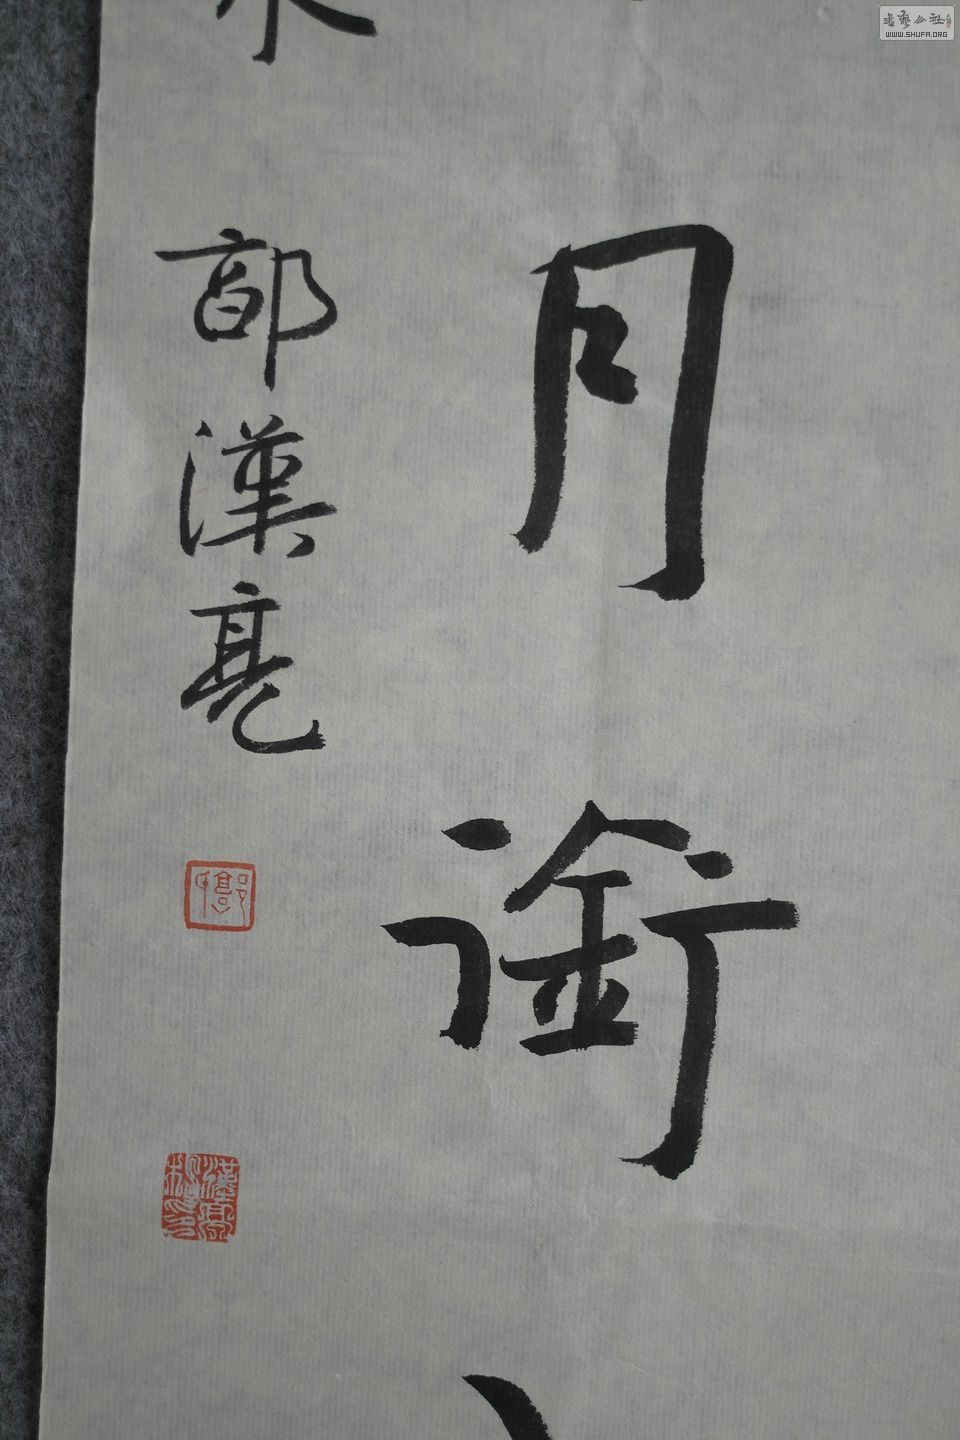 月銜
郭漢亮
書藝公社
WWW.SHUFA.ORG